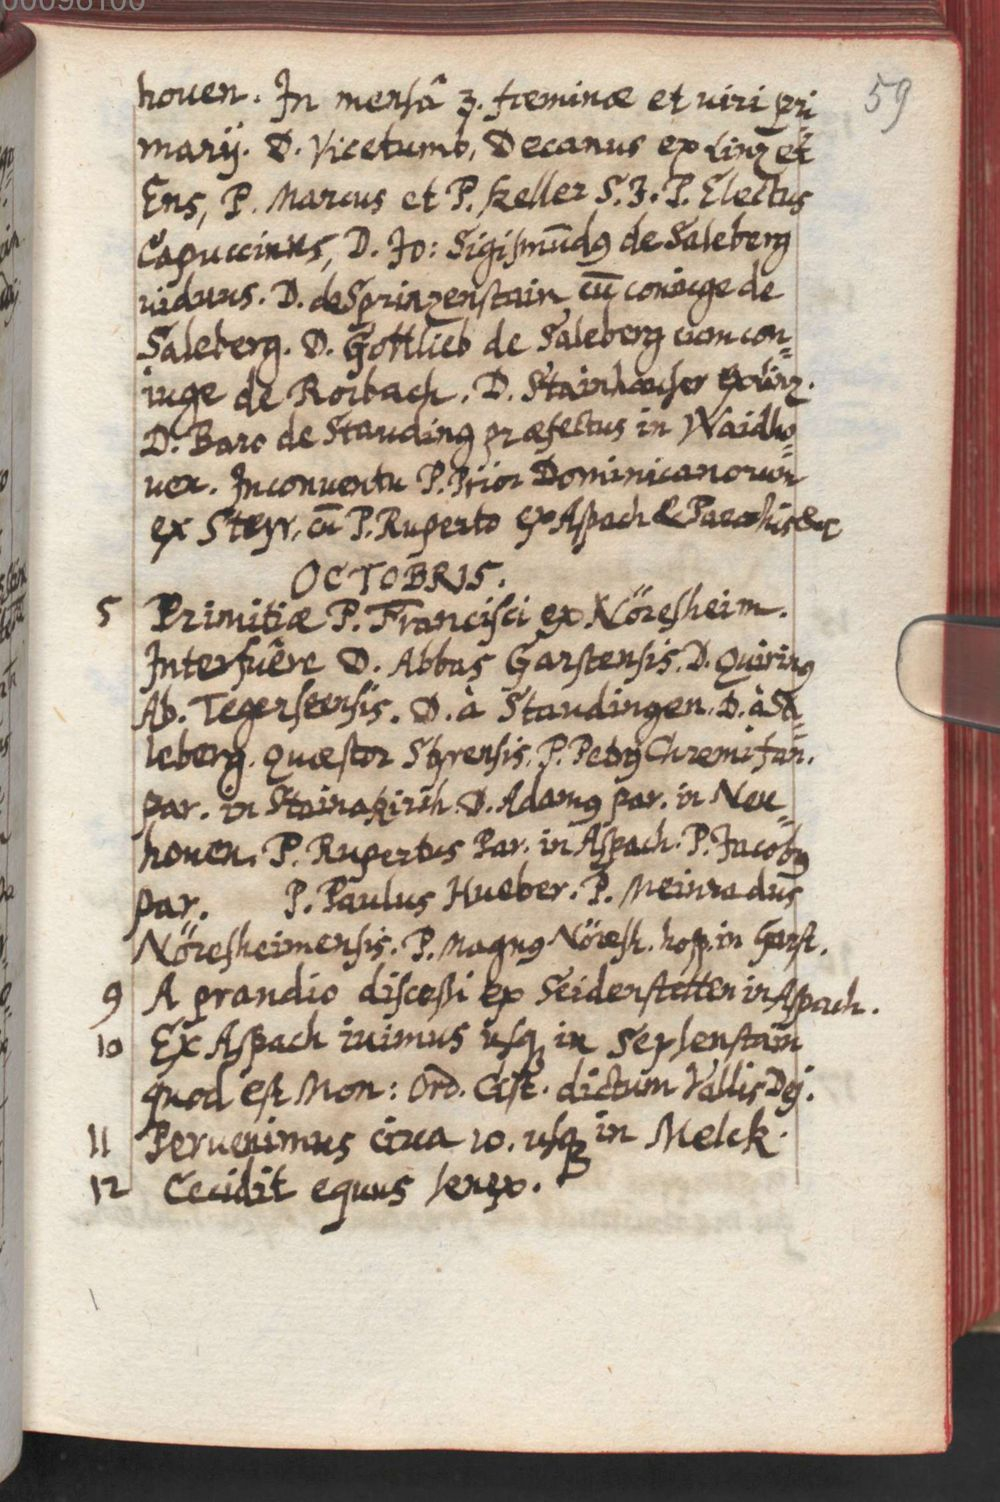 00096100
59
houen. In mensâ 3. fœminæ et viri pri
marij. D. Vicetumb, Decanus ex Linz et
Ens, P. Marcus et P. Keller S.J. P. Electus
Capuccinus, D. Jo: Sigismūdꝰ de Saleberg
viduus. D. de Sprinzenstain cū coniuge de
Saleberg. D. Gottlieb de Saleberg cum con=
iuge de Rorbach. D. Stainhæuser ex Linz.
D. Baro de Stauding præfectus in Waidho=
uen. In conuentu P. Prior Dominicanorum
ex Steyr, cū P. Ruperto ex Aspach & Parochis &c
OCTOBRIS.
5 Primitiæ P. Francisci ex Nöresheim.
Interfuêre D. Abbas Garstensis. D. Quirinꝰ
Ab. Tegerseensis. D. à Staudingen. D. à Sa=
leberg. Quæstor Styrensis. P. Petrꝰ Chremifan.
par. in Stainakirch. D. Adamꝰ par. in Neu=
houen. P. Rupertus Par. in Aspach. P. Jacobꝰ
par. P. Paulus Hueber. P. Meinradus
Nöresheimensis. P. Magnꝰ Nöresh. hosp. in Garst.
9 A prandio discessi ex Seidenstetten in Aspach.
10 Ex Aspach iuimus usq in Seplenstain
quod est Mon: Ord. Cist. dictum Vallis Dej.
11 Peruenimus circa 10. usq in Melck.
12 Cecidit equus senex.